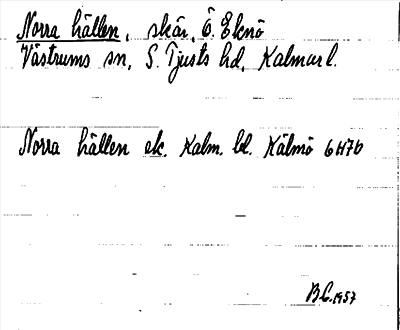 Norra hällen, skär, Ö. Eknö
Västrums sn, S. Tjusts hd, Kalmar l.
Norra hällen ek. Kalm. bl. Kälmö 6H7b
B.C. 1957